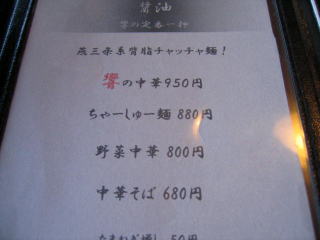 醤油
響の定番一杯
燕三条系背脂チャッチャ麺！
響の中華950円
ちゃーしゅー麺 880円
野菜中華 800円
中華そば 680円
たまねぎ増し 50円